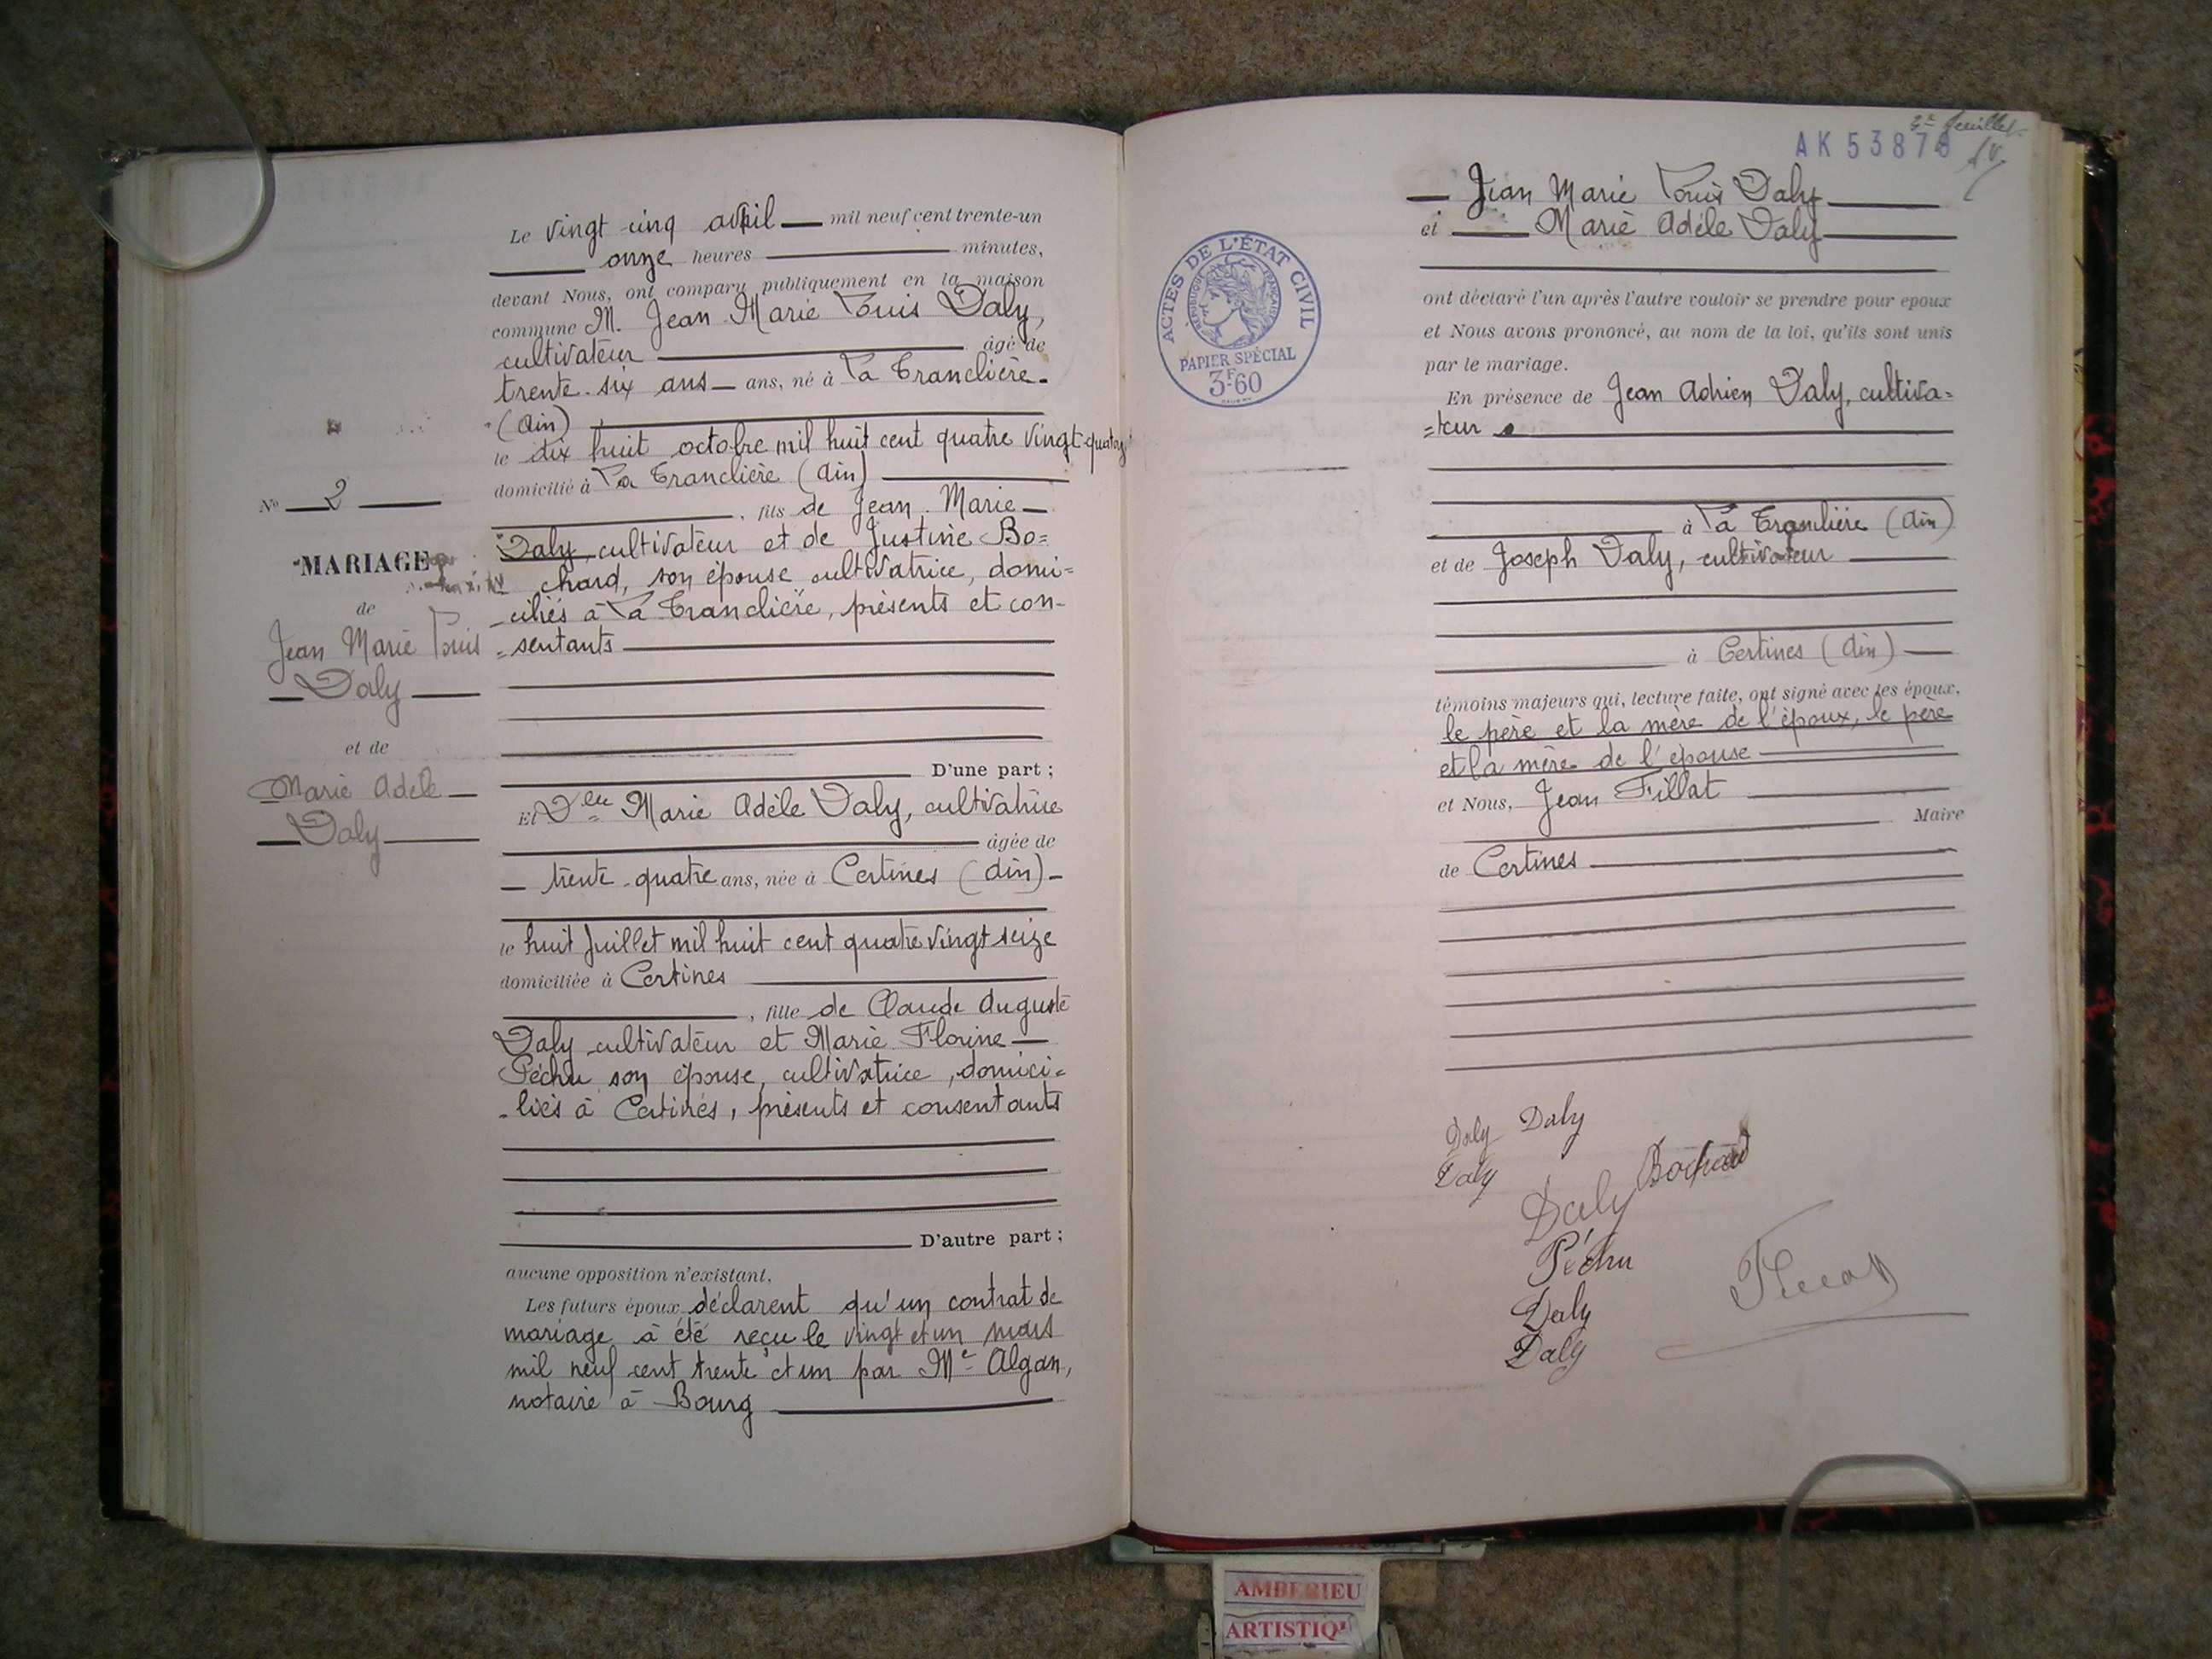 Le vingt-cinq avril — mil neuf cent trente-un
onze heures minutes,
devant Nous, ont comparu publiquement en la maison
commune M. Jean Marie Louis Daly,
cultivateur âgé de
trente-six ans — ans, né à La Tranclière
(Ain)
le dix huit octobre mil huit cent quatre vingt-quatorze
domicilié à La Tranclière (Ain)
, fils de Jean-Marie —
Daly, cultivateur et de Justine Bo=
chard, son épouse cultivatrice, domi=
ciliés à La Tranclière, présents et con-
=sentants
D'une part ;
Et Dlle Marie Adèle Daly, cultivatrice
âgée de
— trente-quatre ans, née à Certines (Ain) —
le huit Juillet mil huit cent quatre vingt seize
domiciliée à Certines
, fille de Claude Auguste
Daly cultivateur et Marie Florine —
Péchu son épouse, cultivatrice, domici=
-liés à Certines, présents et consentants
D'autre part ;
aucune opposition n'existant,
Les futurs époux déclarent qu'un contrat de
mariage a été reçu le vingt et un mars
mil neuf cent trente et un par Me Algan,
notaire à Bourg
No 2
MARIAGE
de
Jean Marie Louis
Daly
et de
Marie Adèle
Daly
2e feuillet
AK 53878
— Jean Marie Louis Daly
et — Marie Adèle Daly
ont déclaré l'un après l'autre vouloir se prendre pour époux
et Nous avons prononcé, au nom de la loi, qu'ils sont unis
par le mariage.
En présence de Jean Adrien Daly, cultiva=
=teur
à La Tranclière (Ain)
et de Joseph Daly, cultivateur
à Certines (Ain)
témoins majeurs qui, lecture faite, ont signé avec les époux,
le père et la mère de l'époux, le père
et la mère de l'épouse
et Nous, Jean Fillat
Maire
de Certines
ACTES DE L'ÉTAT CIVIL
RÉPUBLIQUE FRANÇAISE
PAPIER SPÉCIAL
3F60
Daly Daly
Daly
Daly Bochard
Péchu
Daly
Daly
AMBERIEU
ARTISTIQ